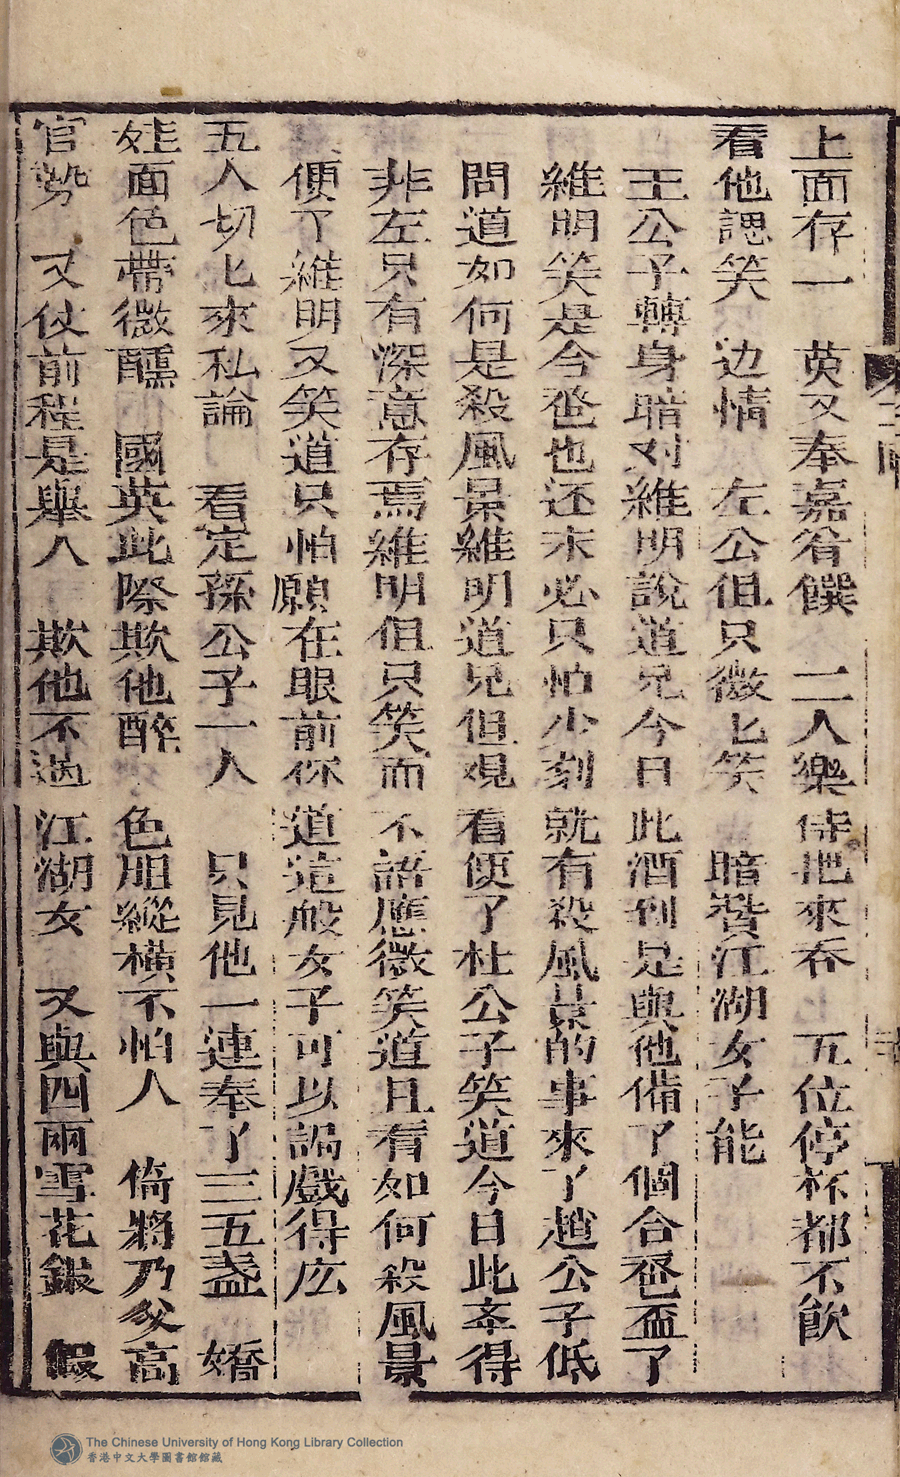 上面存一　萸又奉嘉肴饌　二人樂侍把來吞　五位停杯都不飲
看他謔笑　边情　左公但只微匕笑　暗贊江湖女子能
王公子轉身暗对維明說道兄今日此酒到是與他備了個合卺盃了
維明笑是今卺也还未必只怕少刻就有殺風景的事來了趙公子低
問道如何是殺風景維明道兄但观看便了杜公子笑道今日此率得
非左只有深意存焉維明但只笑而不語應微笑道且看如何殺風景
便了維明又笑道只怕願在眼前你道這般女子可以謁戲得庅
五人切匕來私論　看定孫公子一人　只見他一連奉了三五盞　嬌
娃面色帶微醺　國英此際欺他醉　色胆縱橫不怕人　倚將乃父高
官勢　又仗前程是舉人　欺他不過江湖女　又與四兩雪花銀　假
The Chinese University of Hong Kong Library Collection
香港中文大學圖書館館藏